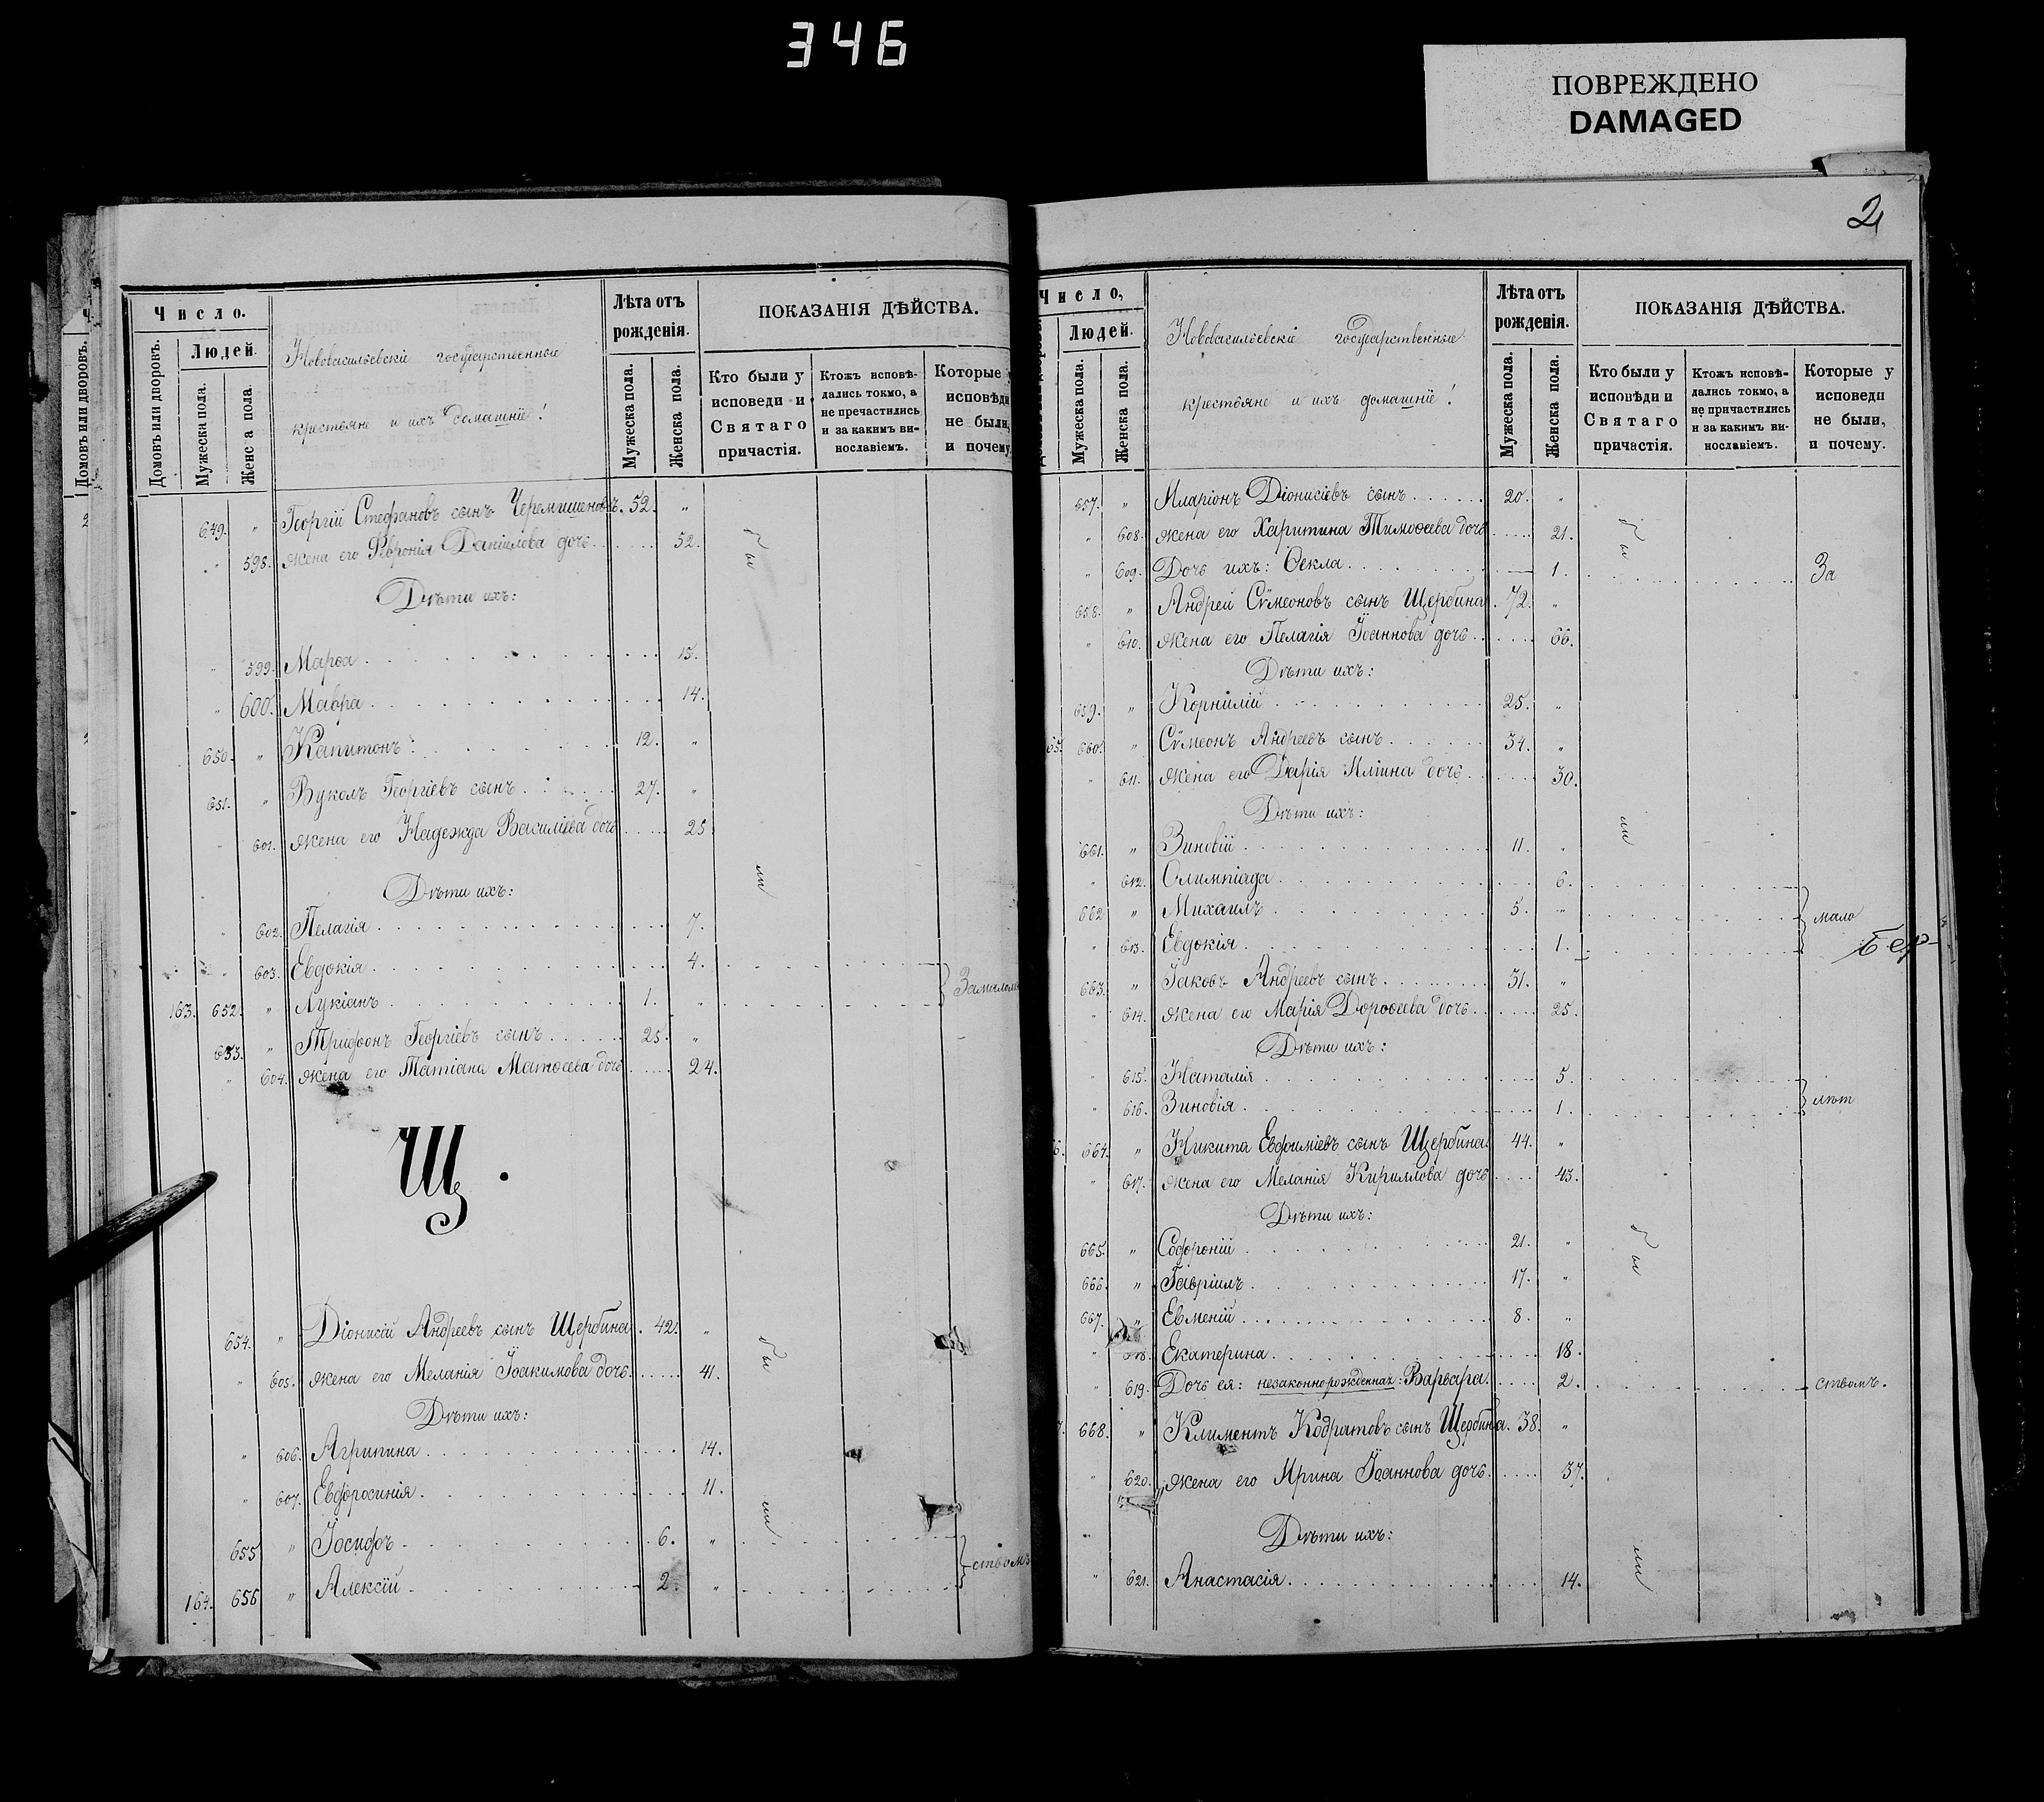 346
ПОВРЕЖДЕНО
DAMAGED
2
Число.
Людей.
Домовъ или дворовъ.
Домовъ или дворовъ.
Мужеска пола.
Женска пола.
Нововасильевскіе государственные
крестьяне и ихъ домашніе!
Лѣта отъ
рожденія.
Мужеска пола.
Женска пола.
ПОКАЗАНІЯ ДѢЙСТВА.
Кто были у
исповеди и
Святаго
причастія.
Ктожъ исповѣ-
дались токмо, а
не пречастились
и за какимъ ви-
нославіемъ.
Которые у
исповѣди
не были,
и почему.
649. " Георгій Стефановъ сынъ Черемишеновъ. 52. "
" 598. жена его Февронія Даніилова дочь 52.
Дѣти ихъ:
" 599. Марѳа 15.
" 600. Мавра 14.
650. " Капитонъ 12. "
651. " Вуколъ Георгіевъ сынъ 27. "
" 601. жена его Надежда Василіева дочь 25
Дѣти ихъ:
" 602. Пелагія 7.
" 603. Евдокія 4.
163. 652. " Лукіанъ 1. " Замалолѣ
653. " Трифонъ Георгіевъ сынъ 25. "
" 604. жена его Татіана Матѳеева дочь 24.
Щ.
654. " Діонисій Андреевъ сынъ Щербина. 42. "
" 605. жена его Меланія Іоакимова дочь 41.
Дѣти ихъ:
" 606. Агрипина 14.
" 607. Евфросинія 11.
655 " Іосифъ 6. "
164. 656 " Алексій 2. " ствомъ
бы
ли
бы
ли
Число,
Людей.
Мужеска пола.
Женска пола.
Нововасильевскіе государственные
крестьяне и ихъ домашніе!
Лѣта отъ
рожденія.
Мужеска пола.
Женска пола.
ПОКАЗАНІЯ ДѢЙСТВА.
Кто были у
исповѣди и
Святаго
причастія.
Ктожъ исповѣ-
дались токмо, а
не причастились
и за какимъ ви-
нославіемъ.
Которые у
исповеди
не были,
и почему.
657. " Иларіонъ Діонисіевъ сынъ 20. "
" 608. жена его Харитина Тимоѳеева дочь 21.
" 609. Дочь ихъ: Ѳекла 1. За
658. " Андрей Сѵмеоновъ сынъ Щербина. 72. "
" 610. жена его Пелагія Іоаннова дочь 66.
Дѣти ихъ:
659. " Корнилій 25. "
65. 660. " Сѵмеонъ Андреевъ сынъ 34. "
" 611. жена его Дарія Иліина дочь 30.
Дѣти ихъ:
661. " Зиновій 11. "
" 612. Олимпіада 6.
662 " Михаилъ 5. " мало
" 613. Евдокія 1.
663. " Іаковъ Андреевъ сынъ 31. "
" 614. жена его Марія Дороѳеева дочь 25.
Дѣти ихъ:
" 615. Наталія 5.
" 616. Зиновія 1. лѣт
6. 664. " Никита Евфиміевъ сынъ Щербина. 44. "
" 617. жена его Меланія Кириллова дочь 43.
Дѣти ихъ:
665. " Софроній 21. "
666. " Гавріилъ 17. "
667. " Евменій 8. "
" 618. Екатерина 18.
" 619. Дочь ея: незаконнорожденная: Варвара. 2. ствомъ.
7. 668. " Климентъ Кодратовъ сынъ Щербина. 38. "
" 620. жена его Ирина Іоаннова дочь. 37.
Дѣти ихъ:
" 621. Анастасія 14.
бы
ли
бы
ли